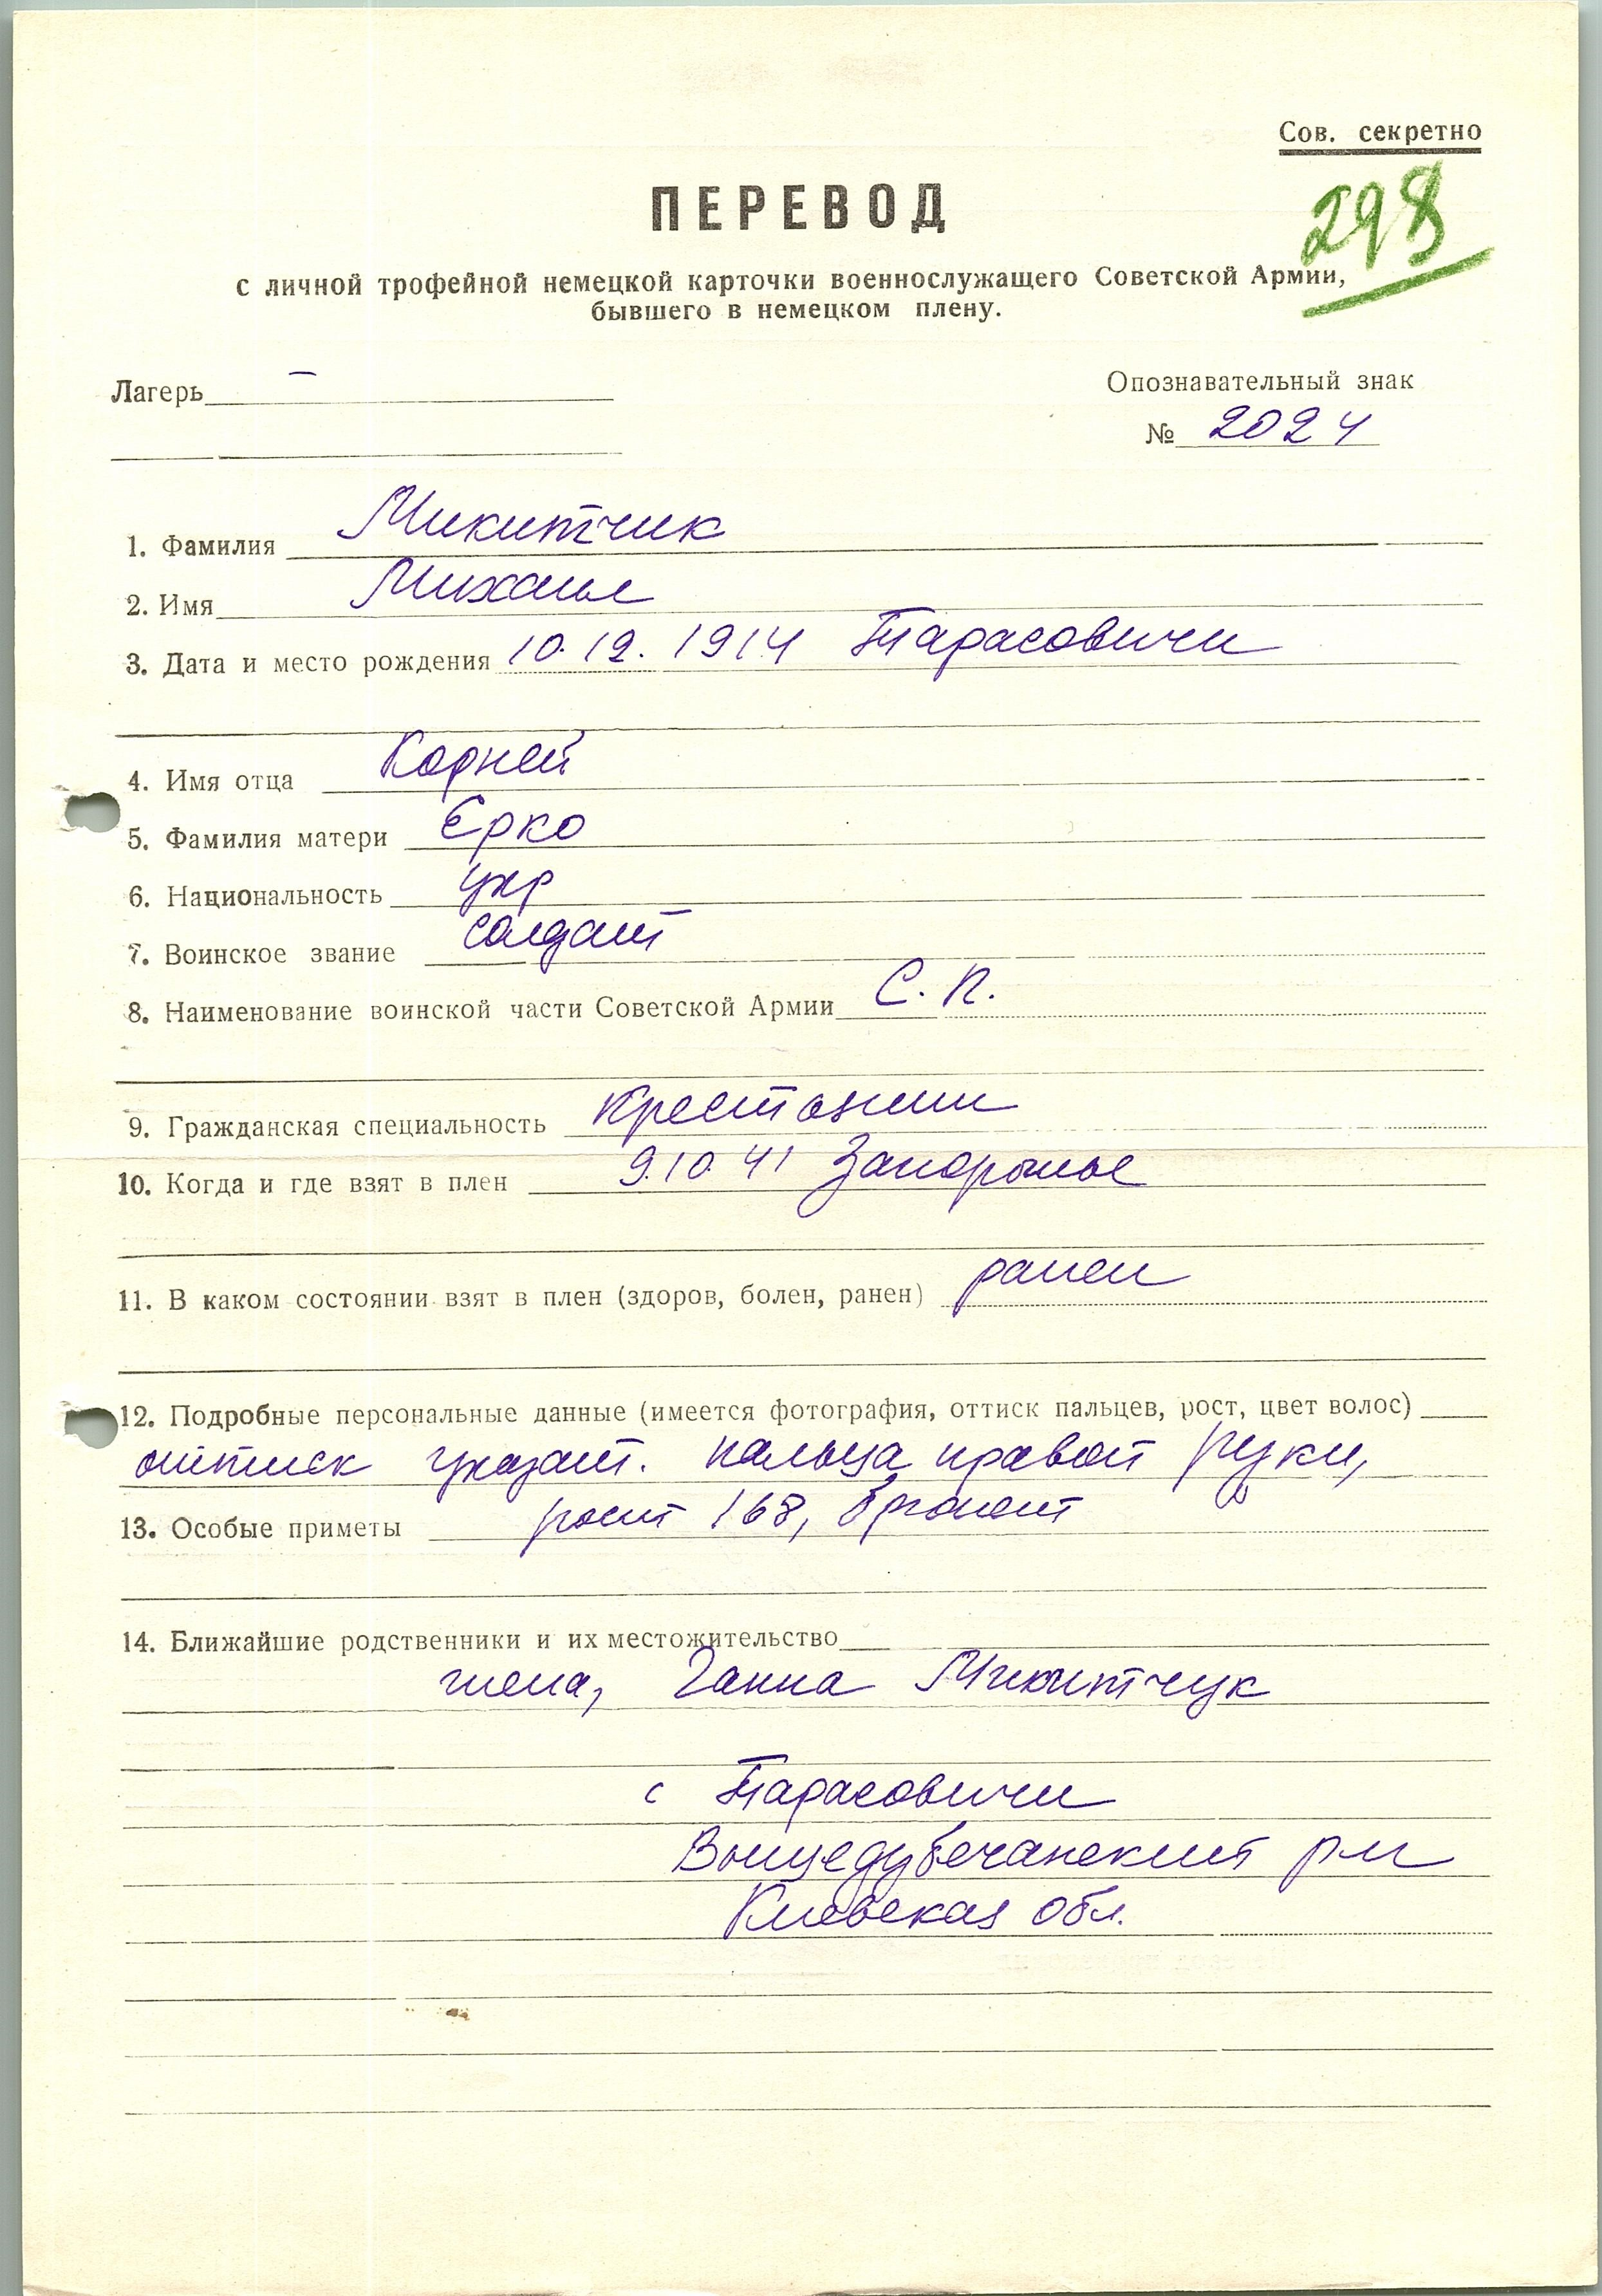 Сов. секретно
298
ПЕРЕВОД
с личной трофейной немецкой карточки военнослужащего Советской Армии,
бывшего в немецком плену.
Лагерь –
Опознавательный знак
№ 2024
1. Фамилия Микитчик
2. Имя Михаил
3. Дата и место рождения 10.12.1914 Тарасовичи
4. Имя отца Корней
5. Фамилия матери Ерко
6. Национальность укр
7. Воинское звание солдат
8. Наименование воинской части Советской Армии С. П.
9. Гражданская специальность крестьянин
10. Когда и где взят в плен 9.10 41 Запорожье
11. В каком состоянии взят в плен (здоров, болен, ранен) ранен
12. Подробные персональные данные (имеется фотография, оттиск пальцев, рост, цвет волос)
оттиск указат. пальца правой руки,
13. Особые приметы рост 168, брюнет
14. Ближайшие родственники и их местожительство
жена, Ганна Микитчук
с Тарасовичи
р-н
Киевская обл.